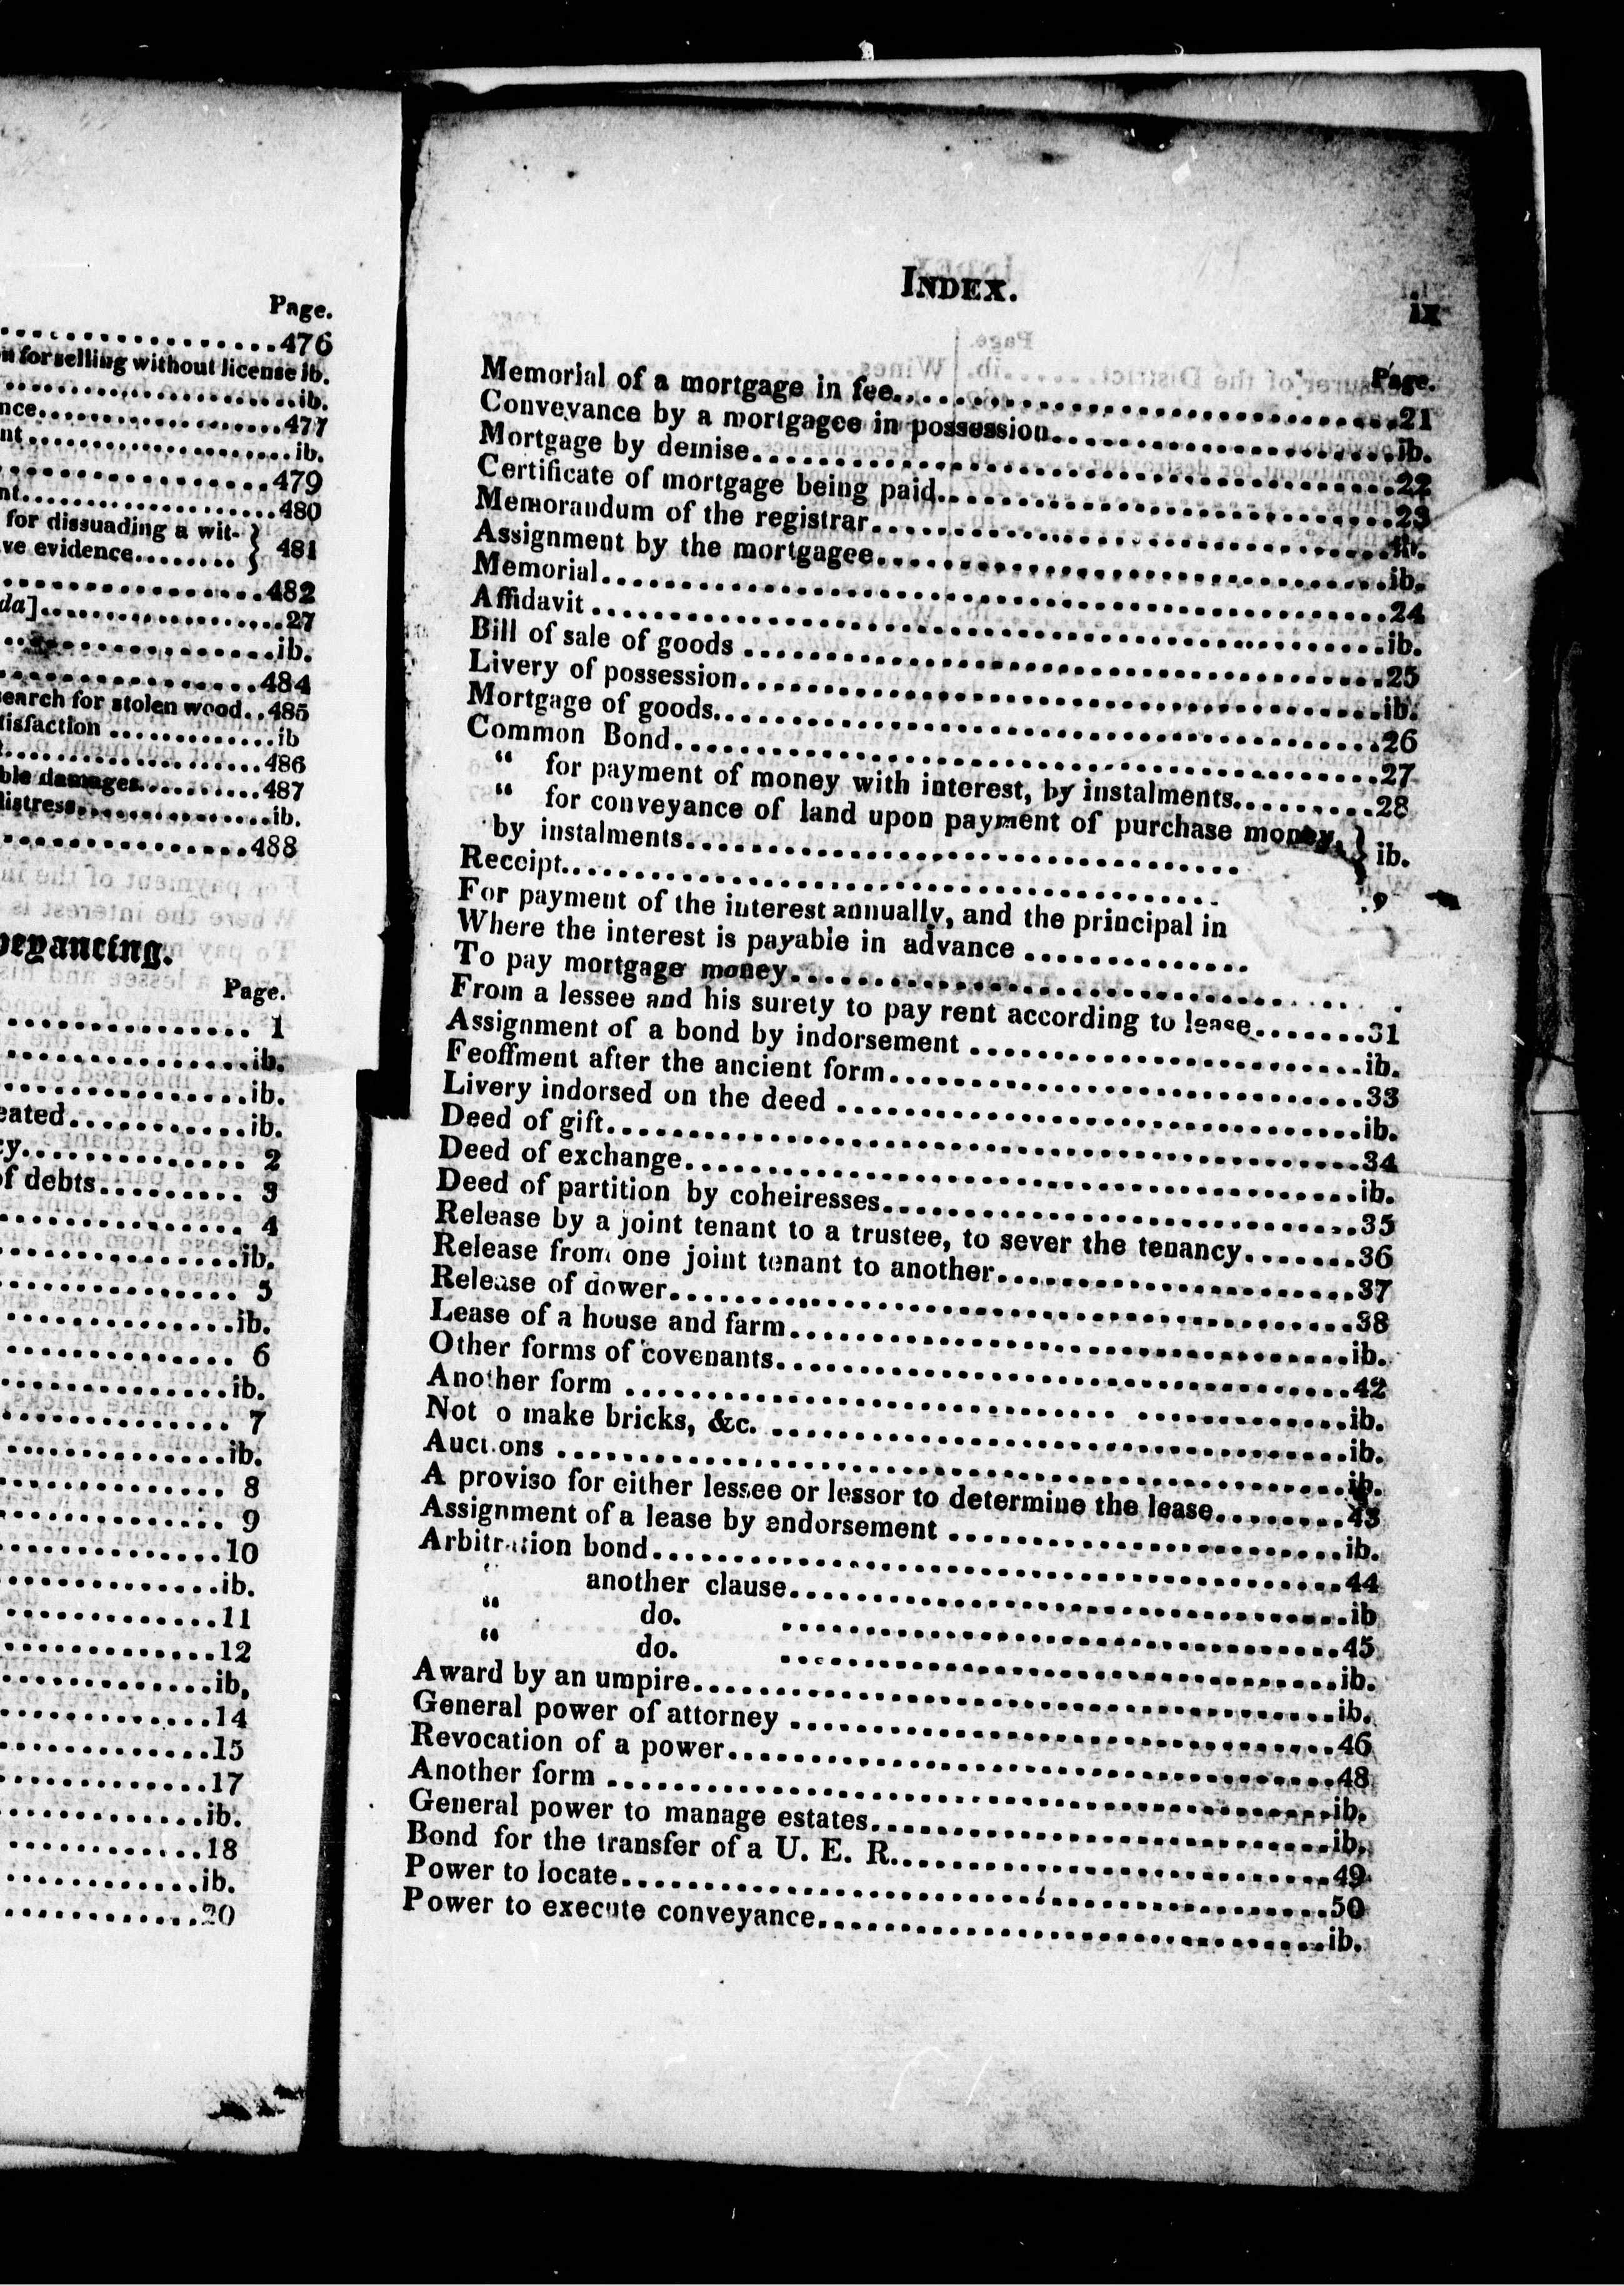 Page.
476
n for selling without license ib.
ib.
nce 477
nt ib.
479
nt 480
for dissuading a wit- } 481
ve evidence
482
da] 27
ib.
484
search for stolen wood..485
tisfaction ib
486
ble damages 487
distress ib.
488
veyancing.
Page.
1
ib.
ib.
eated ib.
cy 2
of debts 3
4
ib.
5
ib.
6
ib.
7
ib.
8
9
10
ib.
11
12
ib.
14
15
17
ib.
18
ib.
20
INDEX. ix
Page.
Memorial of a mortgage in fee 21
Conveyance by a mortgagee in possession ib.
Mortgage by demise 22
Certificate of mortgage being paid 23
Memorandum of the registrar ib.
Assignment by the mortgagee ib.
Memorial 24
Affidavit ib.
Bill of sale of goods 25
Livery of possession ib.
Mortgage of goods 26
Common Bond 27
“ for payment of money with interest, by instalments 28
“ for conveyance of land upon payment of purchase money, } ib.
by instalments
Receipt
For payment of the interest annually, and the principal in
Where the interest is payable in advance
To pay mortgage money
From a lessee and his surety to pay rent according to lease 31
Assignment of a bond by indorsement ib.
Feoffment after the ancient form 33
Livery indorsed on the deed ib.
Deed of gift 34
Deed of exchange ib.
Deed of partition by coheiresses 35
Release by a joint tenant to a trustee, to sever the tenancy 36
Release from one joint tenant to another 37
Release of dower 38
Lease of a house and farm ib.
Other forms of covenants 42
Another form ib.
Not o make bricks, &c. ib.
Auctions ib.
A proviso for either lessee or lessor to determine the lease 43
Assignment of a lease by endorsement ib.
Arbitration bond 44
another clause ib
“ do. 45
“ do. ib.
Award by an umpire ib.
General power of attorney 46
Revocation of a power 48
Another form ib.
General power to manage estates ib.
Bond for the transfer of a U. E. R. 49
Power to locate 50
Power to execute conveyance ib.